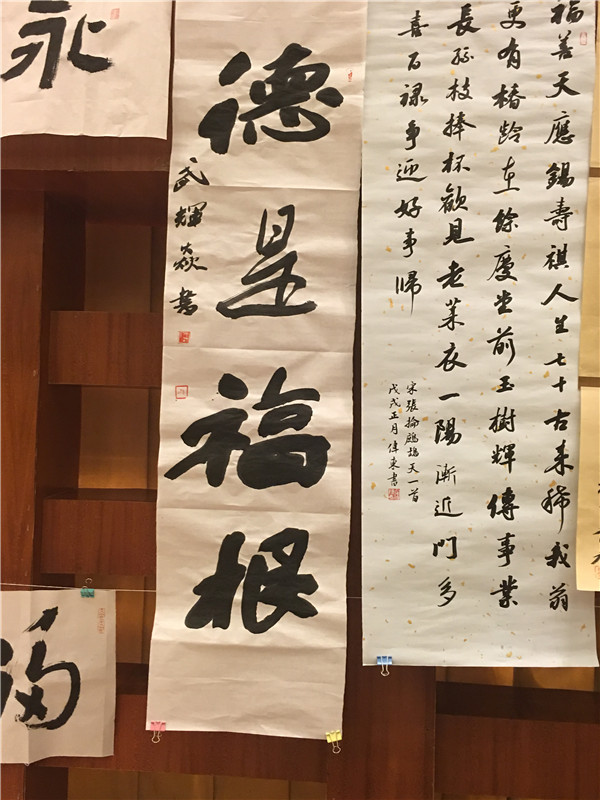 福善天應錫壽祺人生七十古來稀我翁
更有椿齡在餘慶堂前玉樹輝傳事業
長孫枝捧杯歡見老萊衣一陽漸近門多
喜百祿爭迎好事歸
宋張掄鷓鴣天一首
戊戌正月偉東書
德是福根
武輝焱書
永
福